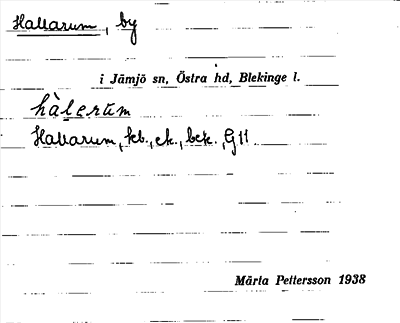 Hallarum, by
i Jämjö sn, Östra hd, Blekinge l.
hàlerum
Hallarum, kb., ek., bek., G11.
Märta Pettersson 1938